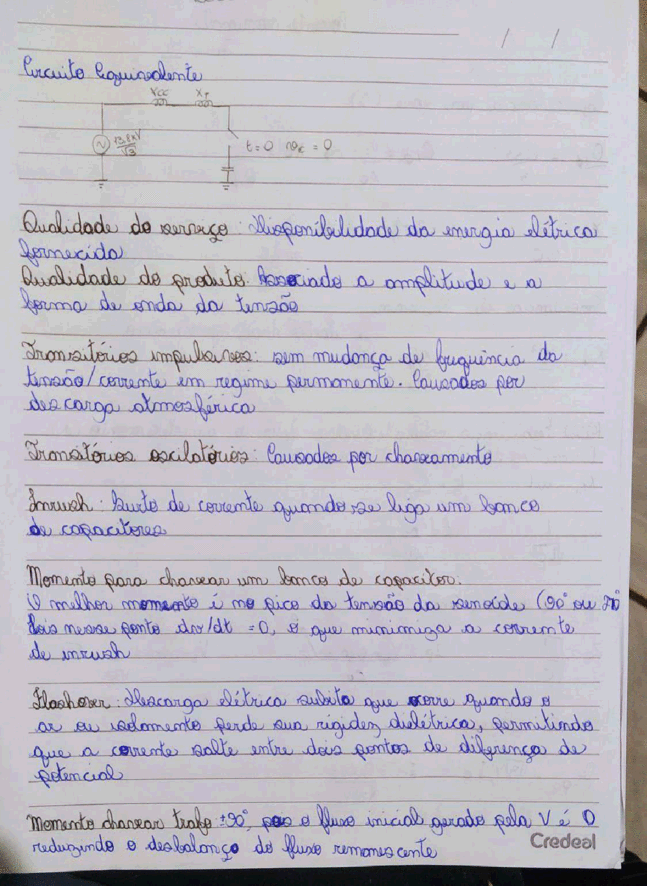 / /
Circuito Equivalente
Vcc Xp
13,8 kV
√3
t=0 Vc = 0
Qualidade do serviço: Disponibilidade da energia elétrica
fornecida
Qualidade do produto: Associado a amplitude e a
forma de onda da tensão
Transitórios impulsivos: sem mudança de frequência da
tensão/corrente em regime permanente. Causados por
descarga atmosférica
Transitórios oscilatórios: Causados por chaveamento
Inrush: Surto de corrente quando se liga um banco
de capacitores
Momento para chavear um banco de capacitor.
O melhor momento é no pico da tensão da senoide (90° ou 270°
Pois nesse ponto dv/dt = 0, o que minimiza a corrente
de inrush
Flashover: Descarga elétrica subita que ocorre quando o
ar ou isolamento perde sua rigidez dielétrica, permitindo
que a corrente salte entre dois pontos de diferença de
potencial
Momento chavear trafo ±90°, pois o fluxo inicial gerado pela V é 0
reduzindo o desbalanço do fluxo remanescente
Credeal